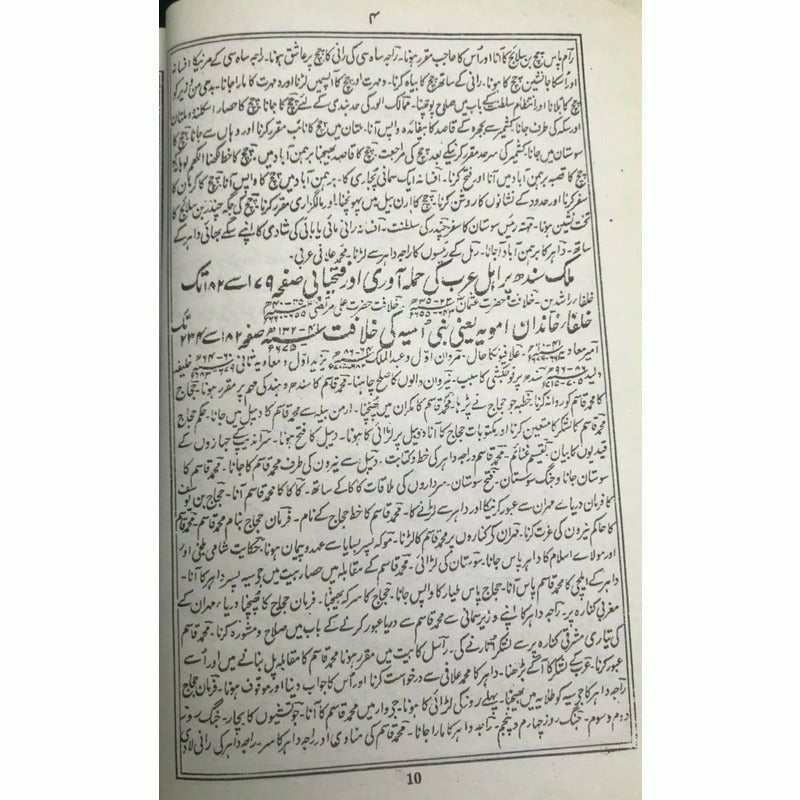 ۴
رام پاس چچ بن سلائج کا آنا اور اُس کا حاجب مقرر ہونا۔ راجہ ساہ سی کی رانی کا چچ پر عاشق ہونا۔ راجہ ساہ سی کے مرنیکا افسانہ
اور اُسکا جانشین چچ کا ہونا۔ رانی کے ساتھ چچ کا بیاہ کرنا۔ وہرت اور چچ کا آپسمیں لڑنا اور دہرت کا مارا جانا۔ بدھی من وزیر کو
چچ کا بلانا اور انتظام سلطنت کے باب میں صلاح پوچھنا۔ ممالک اور کی حد بندی کے لئے چچ کا جانا۔ چچ کا حصار اسکلندہ و ملتان
اور سکہ کی طرف جانا۔ کشمیر سے بجہرہ کے قاصد کا بیفائدہ واپس آنا۔ ملتان میں چچ کا نائب مقرر کرنا اور وہاں سے جانا۔ چچ کا
سوستان میں جانا۔ کشمیر کی سرحد مقرر کرنیکے بعد چچ کی مراجعت چچ کا قاصد بھیجنا برہمن آباد میں۔ چچ کا خط لکھنا اکھم لوہانہ
چچ کا قصبہ برہمن آباد میں آنا اور فتح کرنا۔ افسانہ ایک سمانی پجاری کا۔ برہمن آباد میں چچ کا واپس آنا۔ چچ کا کرمان کا
سفر کرنا اور حدود کے نشانوں کا روشن کرنا۔ چچ کا ارمن بیل میں پہونچنا اور مالگزاری مقرر کرنا۔ چچ کی جگہ چندر بن سلائج کا
تخت نشین ہونا۔ مہتہ رئیس سوستان کا سفر۔ چندر کی سلطنت۔ افسانہ رانی مائی یا بائی کی شادی کا اپنے سگے بھائی داہر کے
ساتھ۔ داہر کا برہمن آباد آجانا۔ رمل کے رئیسوں کا راجہ داہر سے لڑنا۔ محمد علافی عربی۔
ملک سندھ پر اہل عرب کی حملہ آوری اور فتحیابی صفحہ ۱۷۹ سے ۱۸۲ تک
خلفائے راشدین۔ خلافت حضرت عثمان ۲۳-۳۵ھ خلافت حضرت علی مرتضیٰ ۳۵-۴۰ھ
خلفائے خاندان امویہ یعنی بنی اُمیہ کی خلافت صفحہ ۱۸۲ سے ۲۳۴ تک
امیر معاویہ ۔ علافیونکا حال۔ مروان اوّل و عبد الملک یزید اوّل و معاویہ ثانی خلیفہ
ولید سندھ پر فوجکشی کا سبب۔ نیرون والوں کا صلح چاہنا۔ محمد قاسم کا سندھ و ہند کی مہم پر مقرر ہونا۔ حجاج
کا محمد قاسم کو روانہ کرنا۔ خطبہ جو حجاج نے پڑھا۔ محمد قاسم کا مکران میں پہنچنا۔ ارمن بیلہ سے محمد قاسم کا دیبل میں جانا۔ حکم حجاج
محمد قاسم کا لشکر کا متعین کرنا اور مکتوبات حجاج کا آنا۔ دیبل پر لڑائی کا ہونا۔ دیبل کا فتح ہونا۔ سراندیپ کے جہازوں کے
قیدیوں کا بیان۔ تقسیم غنائم۔ محمد قاسم و راجہ داہر کی خط و کتابت۔ دیبل سے نیرون کی طرف محمد قاسم کا جانا۔ محمد قاسم کا
سوستان جانا و جنگ سوستان۔ فتح سوستان۔ سرداروں کی ملاقات کاکا کے ساتھ۔ کاکا کا محمد قاسم آنا۔ حجاج بن یوسف
کا فرمان دریائے مہران سے عبور کرنیکا اور داہر سے لڑنے کا۔ محمد قاسم کا خط حجاج کے نام۔ فرمان حجاج بنام محمد قاسم۔ محمد قاسم
کا حاکم نیرون کی عزت کرنا۔ مہران کی کناروں پر محمد قاسم کا لڑنا۔ موکہ پسر بسایا سے عہد و پیمان ہونا۔ حکایت شامی ایلچی اور
اور مولائے اسلام کا داہر پاس جانا۔ سوستان کی لڑائی۔ محمد قاسم کے مقابلہ میں حصار بیت میں جیسیہ پسر داہر کا آنا۔
داہر کے ایلچی کا محمد قاسم پاس آنا۔ حجاج پاس طیار کا واپس جانا۔ حجاج کا سرکہ بھیجنا۔ فرمان حجاج کا پہنچنا دریائے مہران کے
مغربی کنارہ پر۔ راجہ داہر کا اپنے وزیر سمانی سے محمد قاسم سے دریا عبور کرنے کے باب میں صلاح و مشورہ کرنا۔ محمد قاسم
کی تیاری مشرقی کنارہ پر سے لشکر اتارنے کی۔ راسل کا بیت میں مقرر ہونا محمد قاسم کا مقابلہ پل بنانے میں اور اُسے
عبور کرنا۔ عرب کے لشکر کا آگے بڑھنا۔ داہر کا محمد علافی سے درخواست کرنا اور اُس کا جواب دینا اور موقوف ہونا۔ فرمان حجاج
راجہ داہر کا جیسیہ کو طلایہ میں بھیجنا۔ پہلے روز کی لڑائی کا ہونا۔ جیوار میں محمد قاسم کا آنا۔ جوتشیوں کا بچار۔ جنگ روز
دوم و سوم۔ جنگ روز چہارم و پنجم۔ راجہ داہر کا مارا جانا۔ محمد قاسم کی منادی اور راجہ داہر کا سر۔ راجہ داہر کی رانی لادی
10